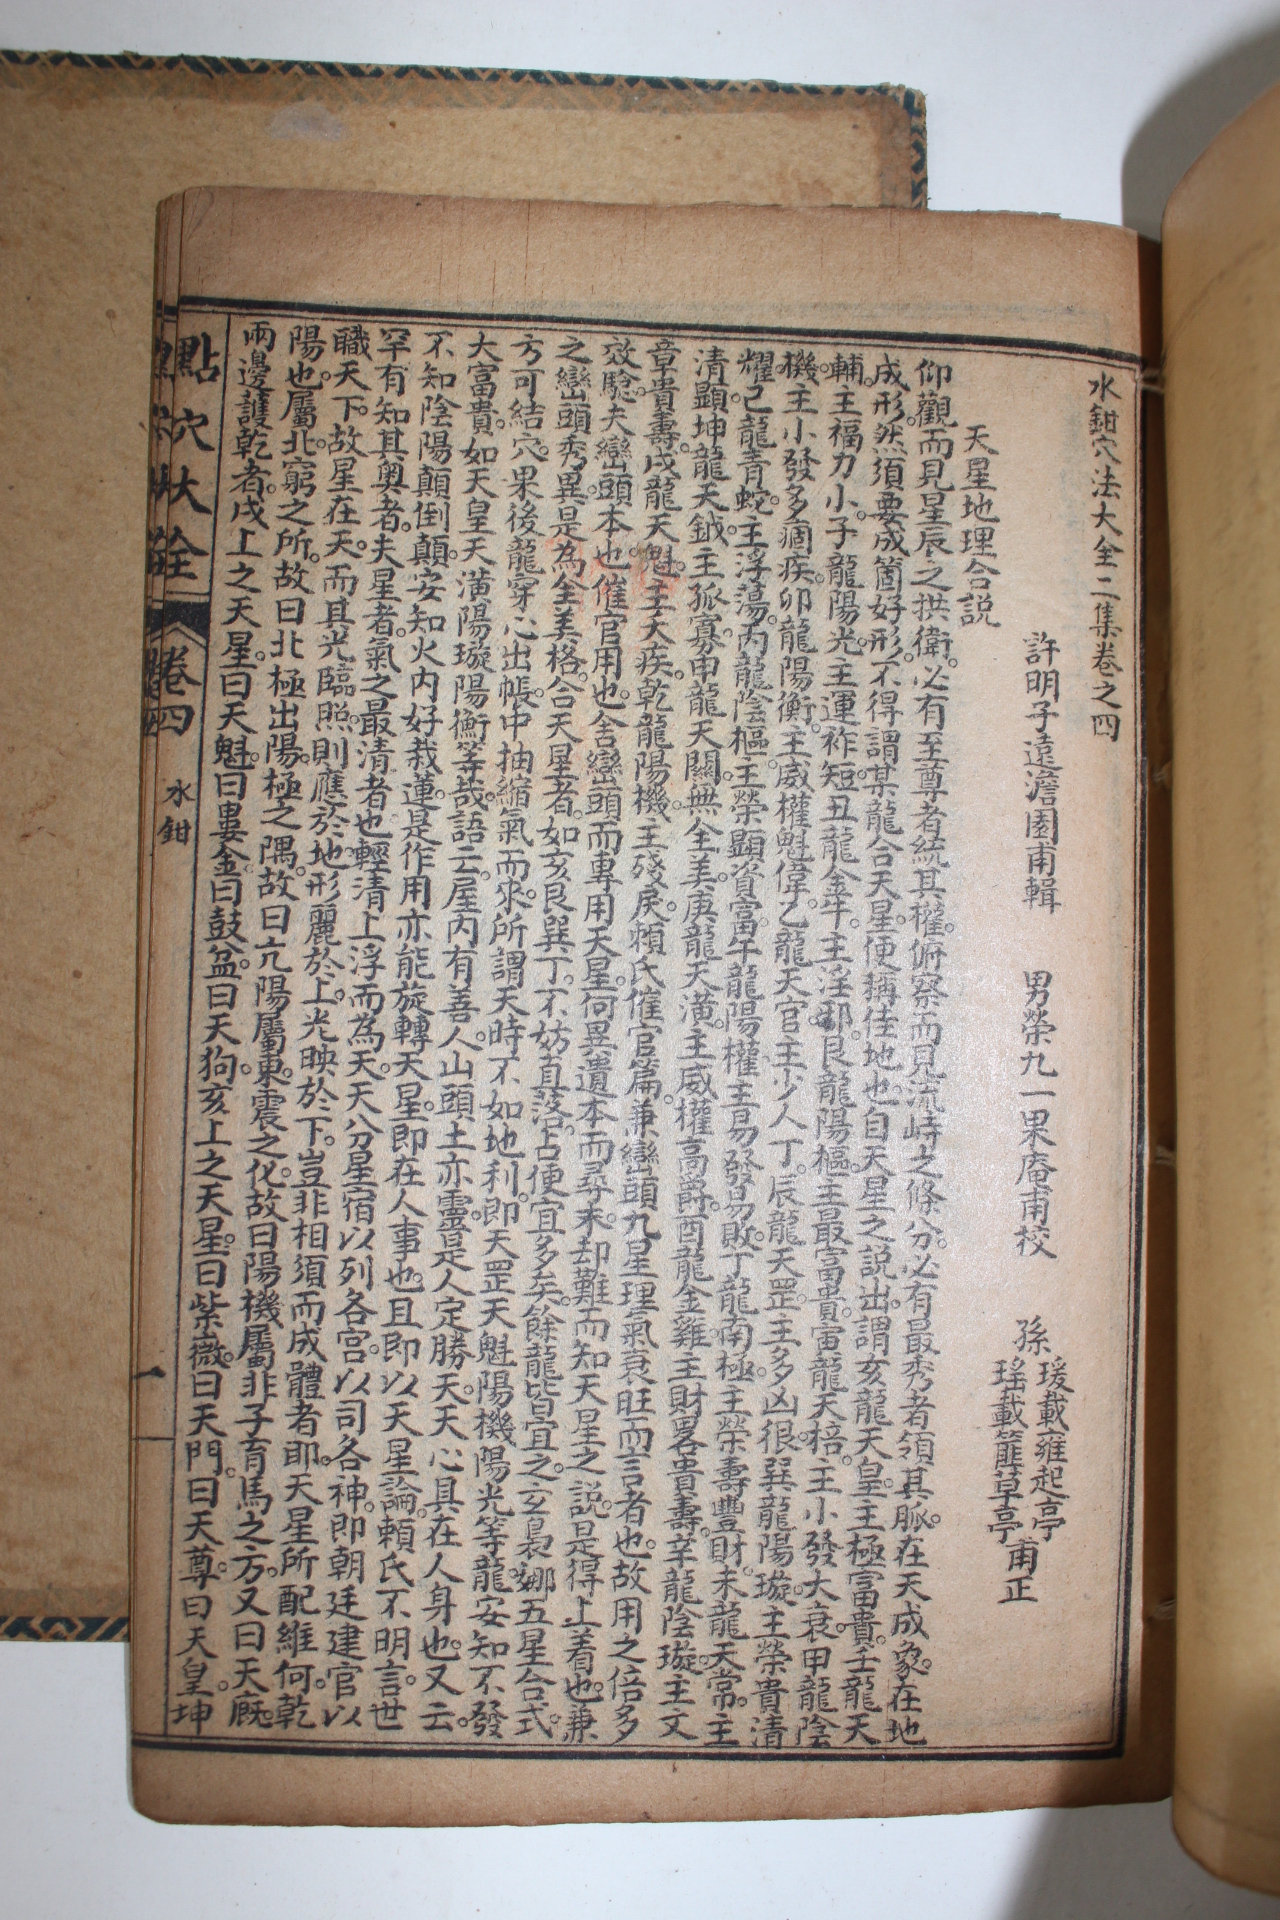 水鉗穴法大全二集卷之四
許明子遠澹園甫輯　男榮九一果庵甫校　孫
瑗載雍起亭
瑤載簏草亭
甫正
天星地理合説
仰觀而見星辰之拱衛。必有至尊者統其權。俯察而見流峙之條分。必有最秀者領其脈。在天成象。在地
成形。然須要成箇好形。不得謂某龍合天星。便稱佳地也。自天星之説出。謂亥龍天皇。主極富貴。壬龍天
輔。主福力小。子龍陽光。主運祚短。丑龍金牛。主淫邪。艮龍陽樞。主最富貴。寅龍天棓。主小發大衰。甲龍陰
機。主小發多痼疾。卯龍陽衡。主威權魁偉。乙龍天官。主少人丁。辰龍天罡。主多凶很。巽龍陽璇。主榮貴清
耀。巳龍青蛇。主浮蕩。丙龍陰樞。主榮顯資富。午龍陽權。主易發易敗。丁龍南極。主榮壽豐財。未龍天常。主
清顯。坤龍天鉞。主孤寡。申龍天關。無全美。庚龍天潢。主威權高爵。酉龍金雞。主財畧貴壽。辛龍陰璇。主文
章貴壽。戌龍天魁。主夭疾。乾龍陽機。主殘戾。頼氏催官篇。兼巒頭九星理氣衰旺而言者也。故用之倍多
效騐。夫巒頭本也。催官用也。舍巒頭而專用天星。何異遺本而尋末。却難而知天星之説。是得上着也。兼
之巒頭秀異。是為全美格。合天星者。如亥艮巽丁。不妨直落。占便宜多矣。餘龍皆宜之玄裊娜。五星合式。
方可結穴。果後龍穿心出帳。中抽縮氣而來。所謂天時不如地利。即天罡天魁陽機陽光等龍。安知不發
大富貴。如天皇天潢陽璇陽衡等哉。語云。屋内有善人。山頭土亦靈。是人定勝天。天心具在人身也。又云。
不知陰陽顛倒顛。安知火内好栽蓮。是作用亦能旋轉天星。即在人事也。且即以天星論。頼氏不明言。世
罕有知其奧者。夫星者。氣之最清者也。輕清上浮而為天。天分星宿。以列各宮。以司各神。即朝廷建官。以
職天下。故星在天。而其光臨照。則應於地。形麗於上。光映於下。豈非相須而成體者耶。天星所配維何。乾
陽也。屬北。窮之所。故曰北極。出陽極之隅。故曰亢陽。屬東震之化。故曰陽機。屬非子育馬之方。又曰天廐。
兩邊護乾者。戌上之天星。曰天魁。曰婁金。曰鼓盆。曰天狗。亥上之天星。曰紫微。曰天門。曰天尊。曰天皇。坤
點穴大全
卷四
水鉗
一